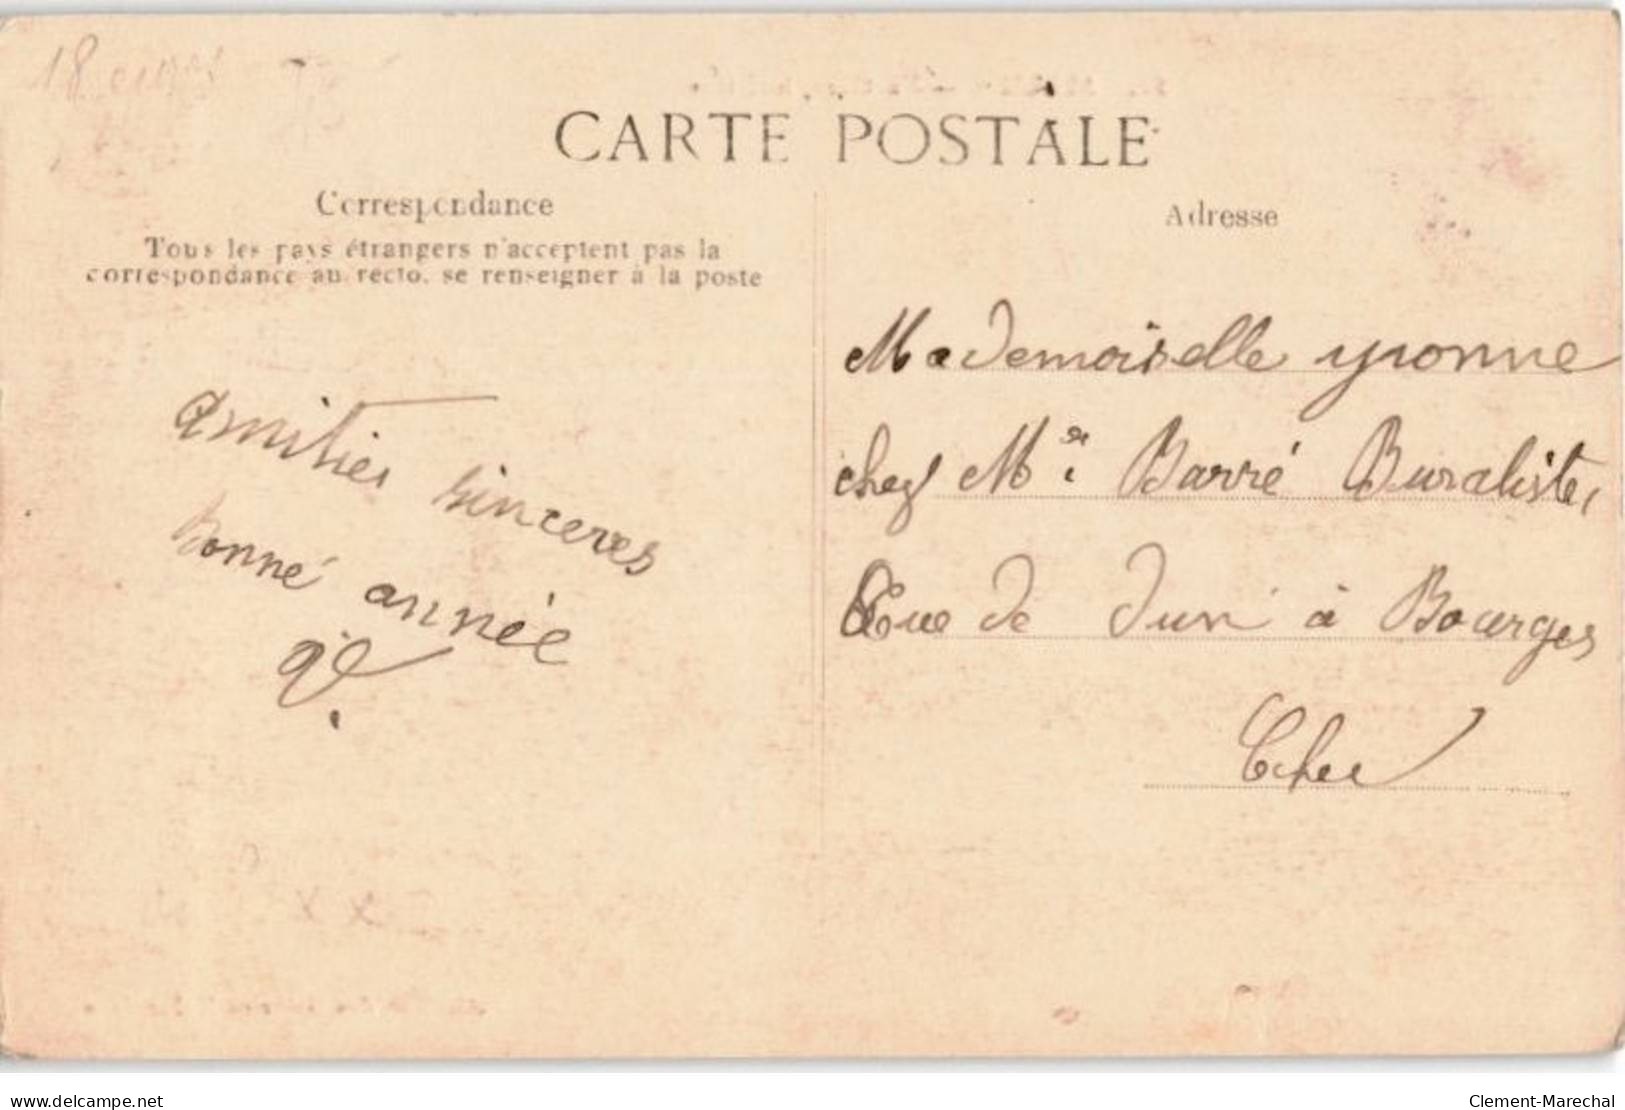 18
CARTE POSTALE
Correspondance
Tous les pays étrangers n'acceptent pas la
correspondance au recto, se renseigner à la poste
Adresse
Amitiés sinceres
bonne année
Mademoiselle yvonne
chez Mr Barré Buraliste,
Rue de Dun à Bourges
Cher
delcampe.net
Clement-Marechal